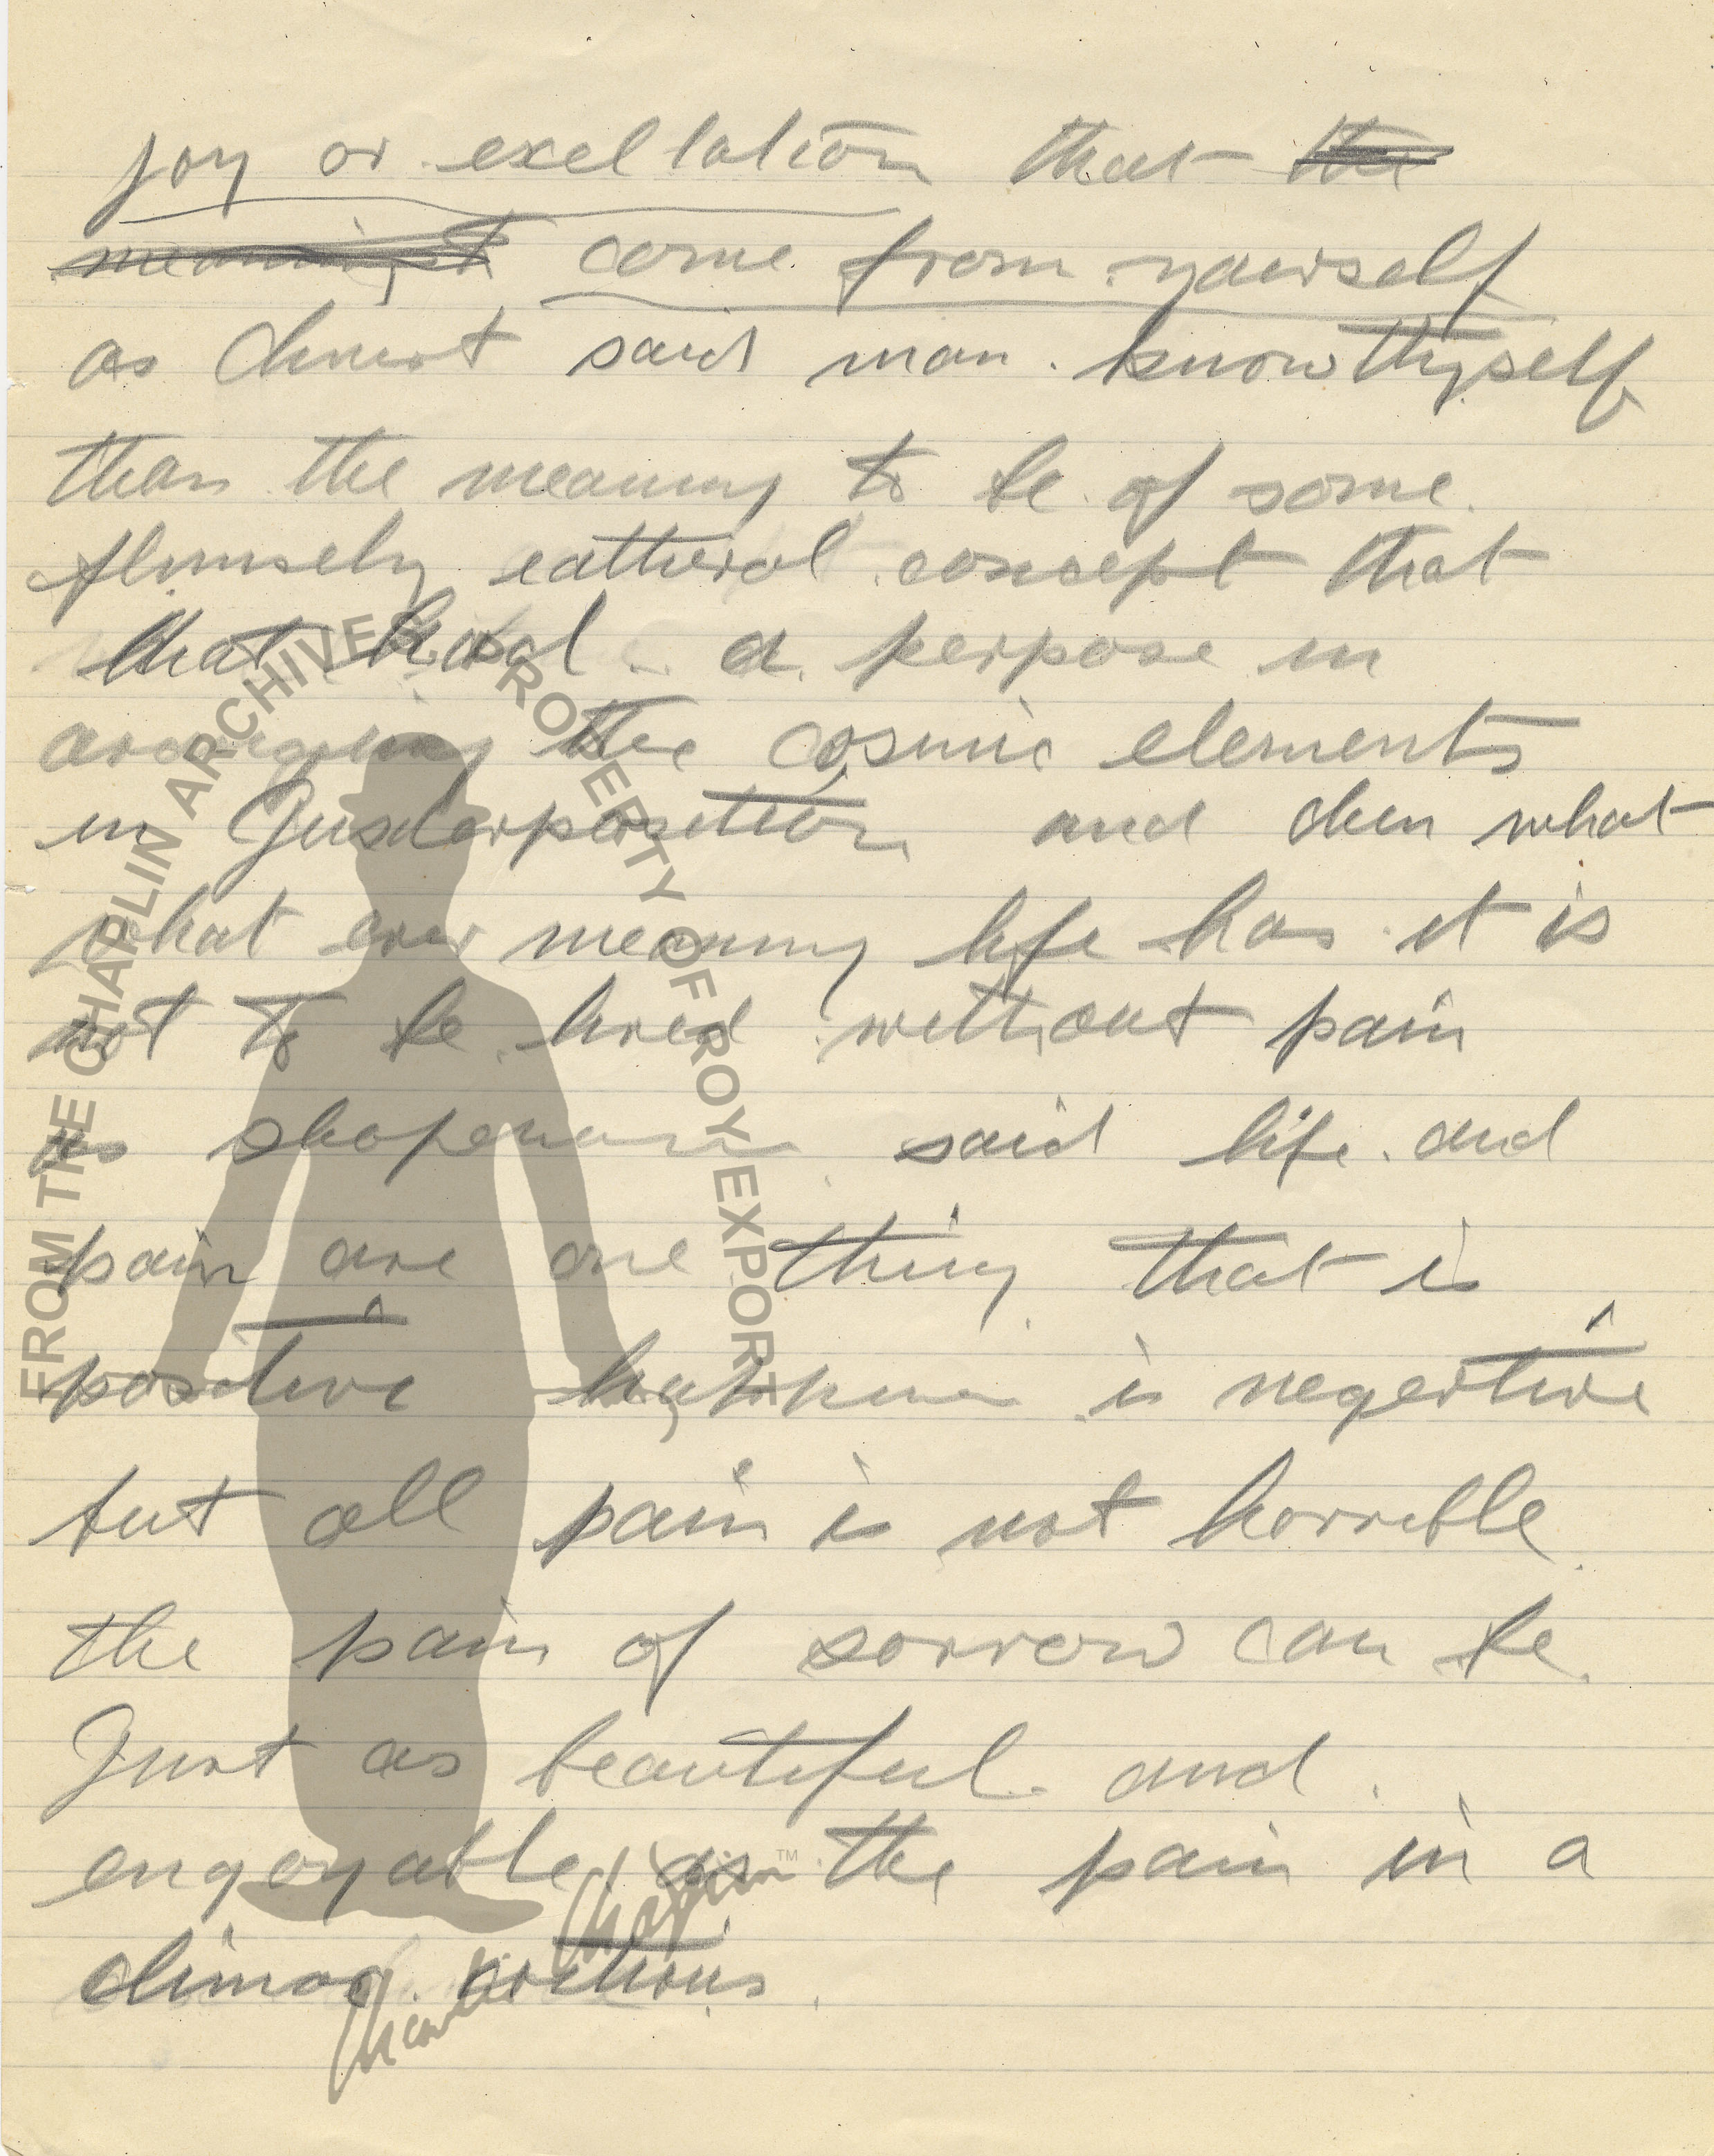 joy or exelltation that ~~the~~
~~meaning t~~ come from yourself
as Christ said man. know thyself
than the meaning to be of some
flimsely eatheral concept that
that had a perpose in
arranging the cosmic elements
in Juxterposition and then what
what ever meaning life has it is
not to be lived without pain
as shopenauer said life and
pain are one thing that is
positive happiness is negertive
but all pain is not horrible
the pain of sorrow can be
Just as beautiful and
engoyable as the pain in a
FROM THE CHAPLIN ARCHIVES, PROPERTY OF ROY EXPORT
Charlie Chaplin™